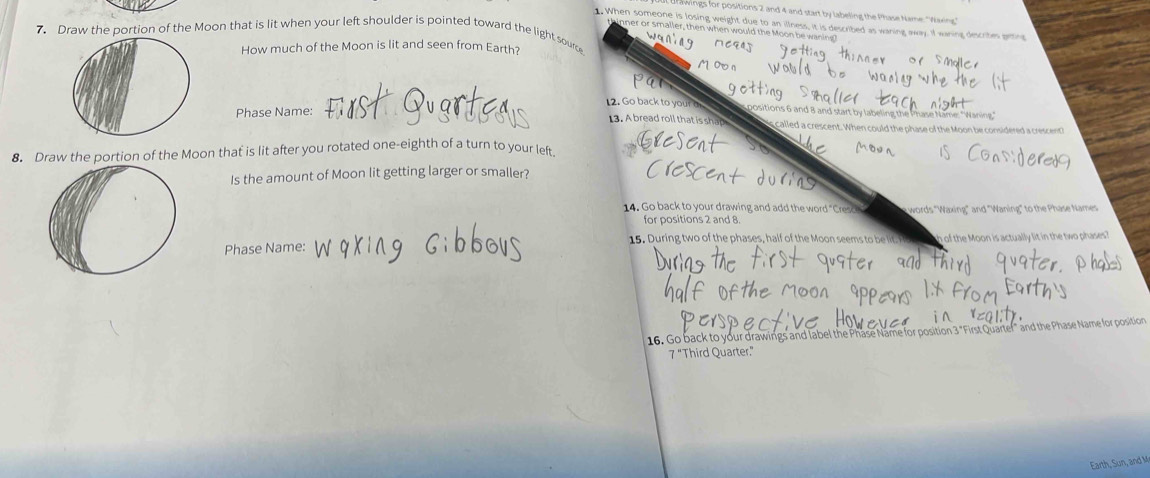 7. Draw the portion of the Moon that is lit when your left shoulder is pointed toward the light source.
How much of the Moon is lit and seen from Earth?
Phase Name: First Quarteous
8. Draw the portion of the Moon that is lit after you rotated one-eighth of a turn to your left.
Is the amount of Moon lit getting larger or smaller?
Phase Name: Waxing Gibbous
drawings for positions 2 and 4 and start by labeling the Phase Name: "Waxing"
1. When someone is losing weight due to an illness, it is described as waning away. If waning describes getting
thinner or smaller, then when would the Moon be waning?
waning means getting thinner or smaller
moon would be waning whe the lit
par getting smaller each night
12. Go back to your positions 6 and 8 and start by labeling the Phase Name: "Waning."
13. A bread roll that is shap called a crescent. When could the phase of the Moon be considered a crescent?
Cresent so the moon is Considereng
Crescent during
14. Go back to your drawing and add the word "Cresc words "Waxing" and "Waning" to the Phase Names
for positions 2 and 8.
15. During two of the phases, half of the Moon seems to be lit. h of the Moon is actually lit in the two phases?
During the first quater and third quater. phases
half of the moon appears lit from Earth's
perspective However in reality.
16. Go back to your drawings and label the Phase Name for position 3 "First Quarter" and the Phase Name for position
7 "Third Quarter."
Earth, Sun, and M